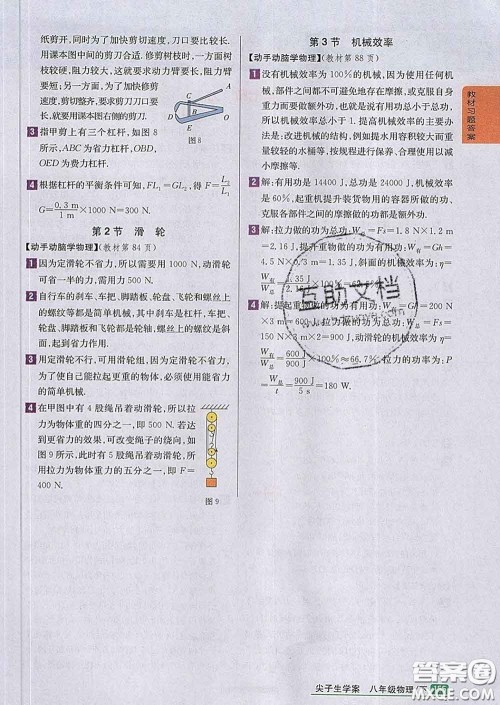 纸剪开，为了加快剪切速度，刀口要比较长，
用课本图中间的剪刀合适。修剪树枝时，一方面树
枝较硬，阻力较大，这就要求剪刀动力臂
要长；另一方面，为了加快
修剪速度，要求剪刀刀口要
长，就要用课本图右侧的剪刀。
图8
3 指甲剪上有三个杠杆，如图8
所示，ABC为省力杠杆，OBD、
OED为费力杠杆。
4 根据杠杆的平衡条件可知，FL₁=GL₂，得F=L₂/L₁
G=0.3 m/1 m×1000 N=300 N。
第2节 滑 轮
【动手动脑学物理】(教材第84页)
1 因为定滑轮不省力，所以需要用1000 N，动滑轮
可省一半的力，需用500 N。
2 自行车的刹车、车把、脚踏板、轮盘、飞轮和螺丝上
的螺纹等都是简单机械，其中刹车是杠杆，车
把、轮盘、脚踏板和飞轮都是轮轴，螺丝上的螺纹
是斜面。
3 用定滑轮不行，可用滑轮组，因为定滑轮不省力，
为了使自己能拉起更重的物体，必须使用能省力
的简单机械。
4 在甲图中有4股绳吊着动滑轮，所以拉
力为物体重的四分之一，即500 N。若要
达到更省力的效果，可改变绳子的绕向，如
图9所示，此时有5股绳吊着动滑轮，所以
拉力为物体重的五分之一，即F=
400 N。
图9
第3节 机械效率
【动手动脑学物理】(教材第88页)
1 没有机械效率为100%的机械，因为使用任何机
械，部件之间都不可避免地存在摩擦，或克服自身
重力而要做额外功，也就是说有用功总小于总功，
所以机械效率总小于1。提高机械效率的办法主
要是：改进机械的结构，例如提水用容积较大而重
量较轻的水桶等，按规程进行保养、合理使用以减
小摩擦等。
2 解：有用功是14400 J，总功是24000 J，机械效率
是60%，起重机提升装货物用的容器所做的功、
克服各部件之间的摩擦力做的功都是额外功。
3 解：拉力做的总功为：W总=FS=1.8 N×1.2 m
=2.16 J，提升重物做的功为有用功：W有=Gh=
4.5 N×0.3 m=1.35 J，机械效率是：η=
W有/W总=1.35 J/2.16 J×100%=62.5%。
4 解：提起重物做的功为有用功：W有=Gh=200 N
×3 m=600 J，拉力做的功为总功：W总=900 J，η=
W有/W总=600 J/900 J×100%≈66.7%，拉力的功率为：P=
W总/t=900 J/5 s=180 W。
教材习题答案
互助文档
尖子生学案 八年级物理
答案圈
MXQE.COM